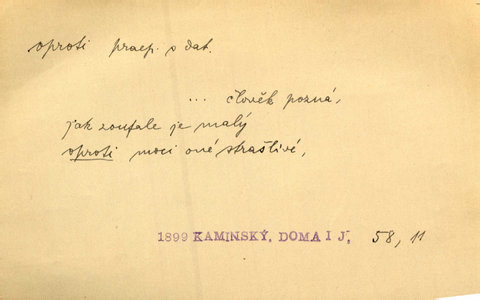 oproti praep. s dat.
... člověk pozná,
jak zoufale je malý
oproti moci oné strašlivé,
1899 KAMINSKÝ, DOMA I J, 58, 11